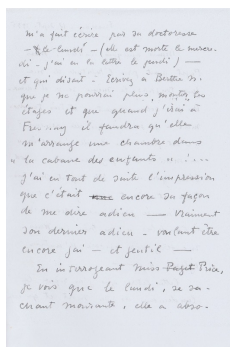 m'a fait écrire par sa doctoresse
– le lundi – (elle est morte le mercre-
di – j'ai eu la lettre le jeudi) —
et qui disait : Ecrivez à Berthe
que je ne pourrai plus monter les
étages et que quand j'irai à
il faudra qu'elle
m'arrange une chambre dans
" la cabane des enfants " .....
J'ai eu tout de suite l'impression
que c'était encore sa façon
de me dire adieu — Vraiment
son dernier adieu – voulant être
encore gai – et gentil —
En interrogeant Miss Paget Price,
je vois que le lundi, se sa-
chant mourante, elle a abso-